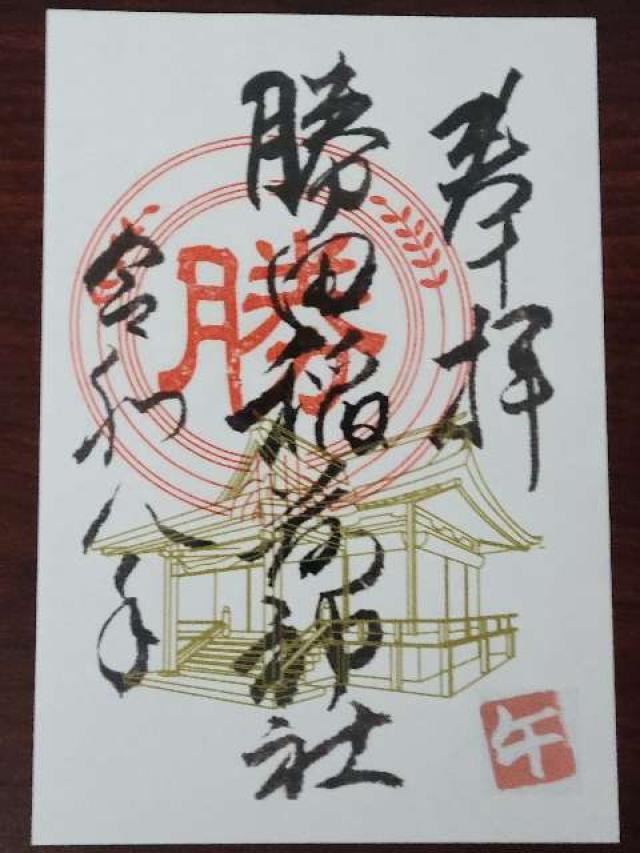 奉拝
勝田稲荷神社
令和八年
勝
午